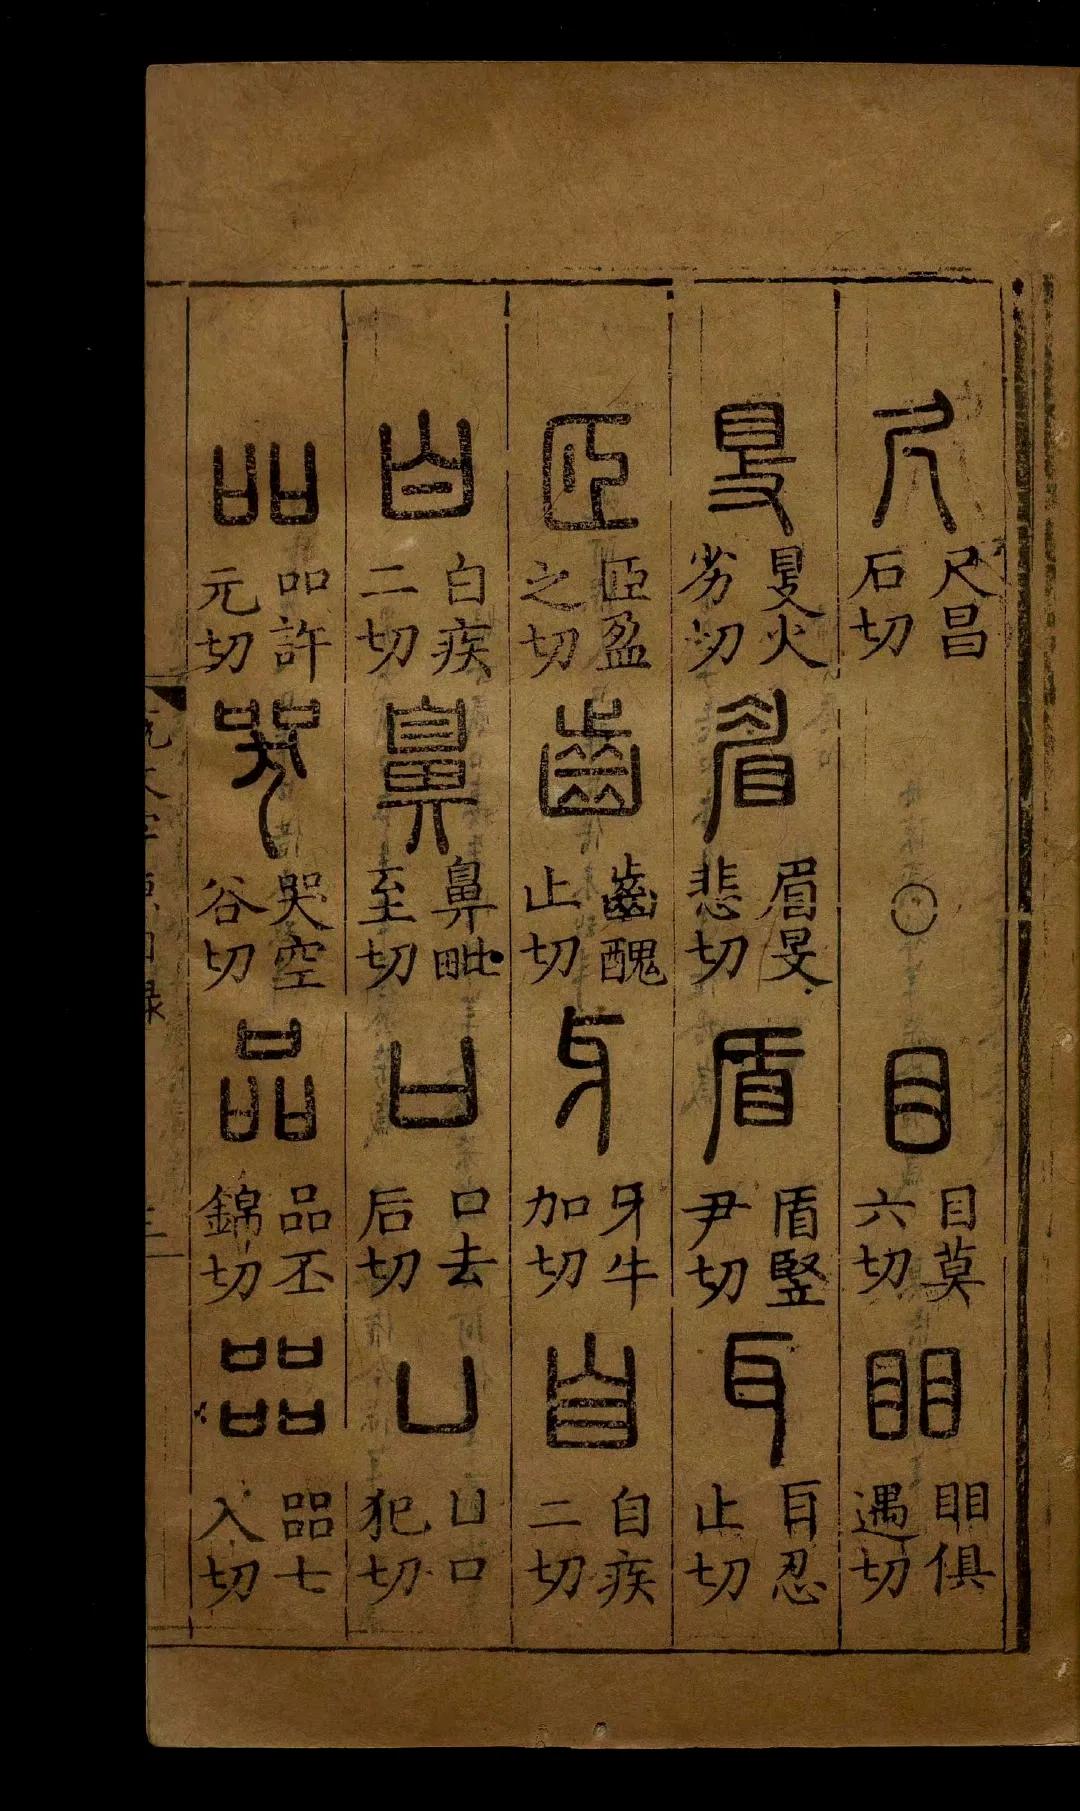 尺 尺昌石切 ○ 目 目莫六切 䀠 䀠俱遇切
𥄎 𥄎火劣切 眉 眉旻悲切 盾 盾豎尹切 耳 耳忍止切
𦣞 𦣞盈之切 齒 齒醜止切 牙 牙牛加切 自 自疾二切
白 白疾二切 鼻 鼻毗至切 口 口去后切 凵 凵口犯切
吅 吅許元切 哭 哭空谷切 品 品丕錦切 㗊 㗊七入切